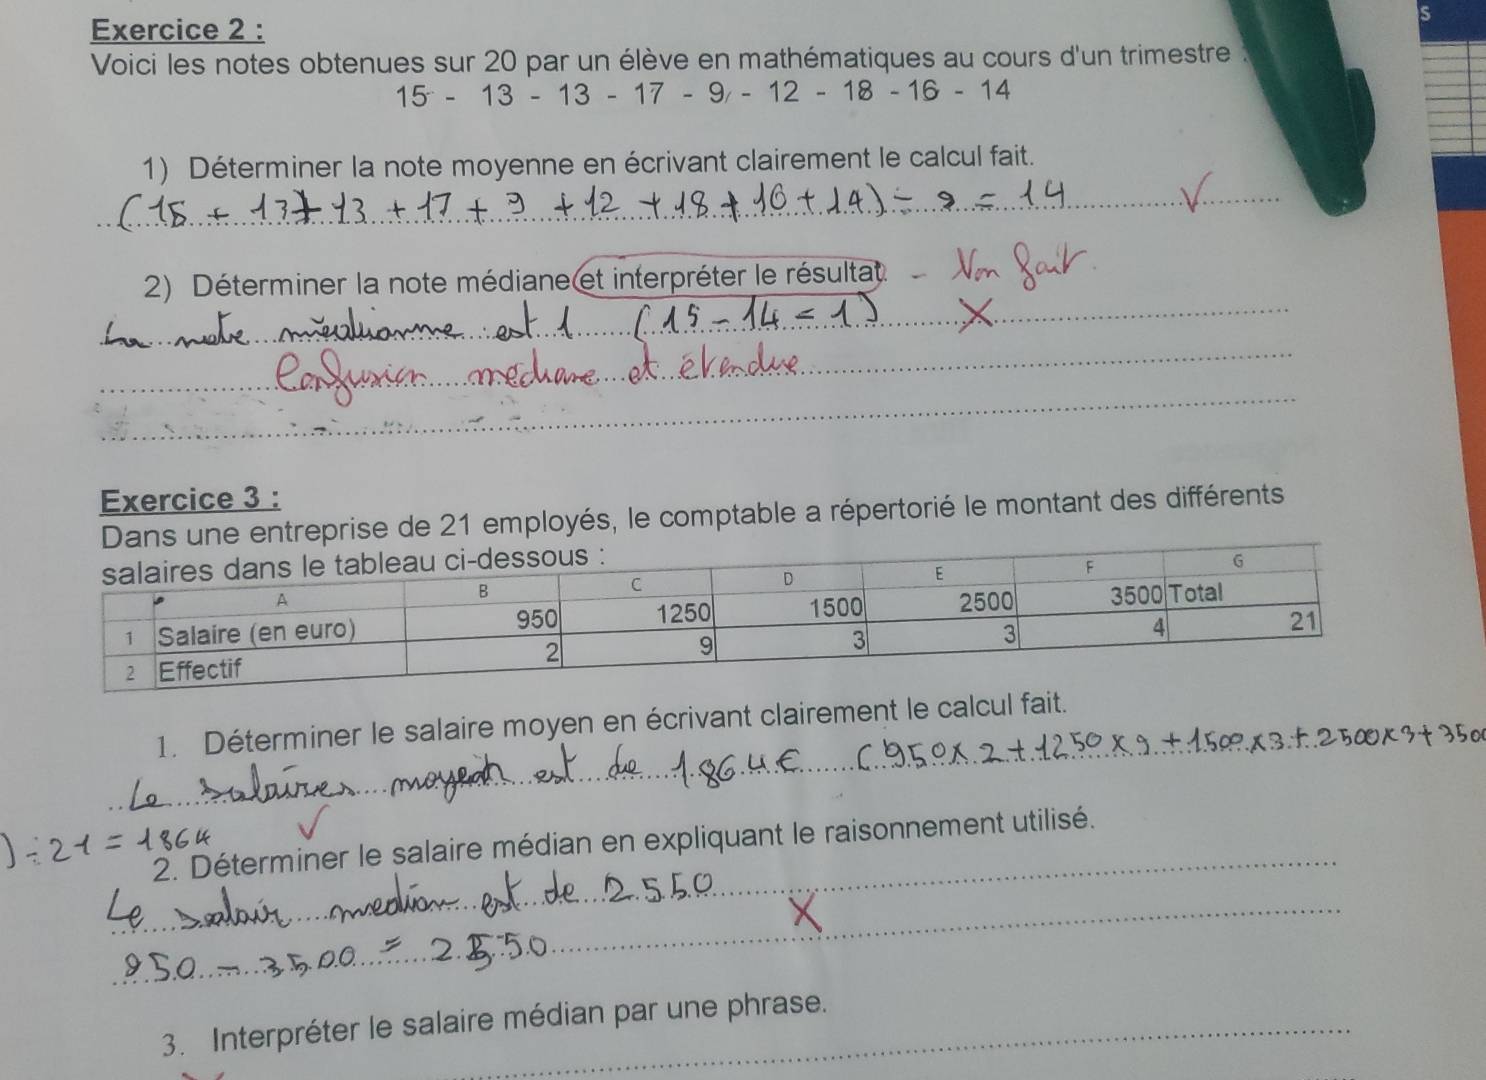 S
Exercice 2 :
Voici les notes obtenues sur 20 par un élève en mathématiques au cours d'un trimestre :
15 - 13 - 13 - 17 - 9 - 12 - 18 - 16 - 14
1) Déterminer la note moyenne en écrivant clairement le calcul fait.
(15 + 13 + 13 + 17 + 9 + 12 + 18 + 16 + 14) ÷ 9 = 14
2) Déterminer la note médiane et interpréter le résultat. - Non fait.
La note médianne est 1 (15 - 14 = 1)
Confusion médiane et étendue
Exercice 3 :
Dans une entreprise de 21 employés, le comptable a répertorié le montant des différents
salaires dans le tableau ci-dessous :
A B C D E F G
1 Salaire (en euro) 950 1250 1500 2500 3500 Total
2 Effectif 2 9 3 3 4 21
1. Déterminer le salaire moyen en écrivant clairement le calcul fait.
Le salaires moyen est de 1864€ (950 x 2 + 1250 x 9 + 1500 x 3 + 2500 x 3 + 3500
) ÷ 21 = 1864
2. Déterminer le salaire médian en expliquant le raisonnement utilisé.
Le salair median est de 2550
950 - 3500 = 2550
3. Interpréter le salaire médian par une phrase.